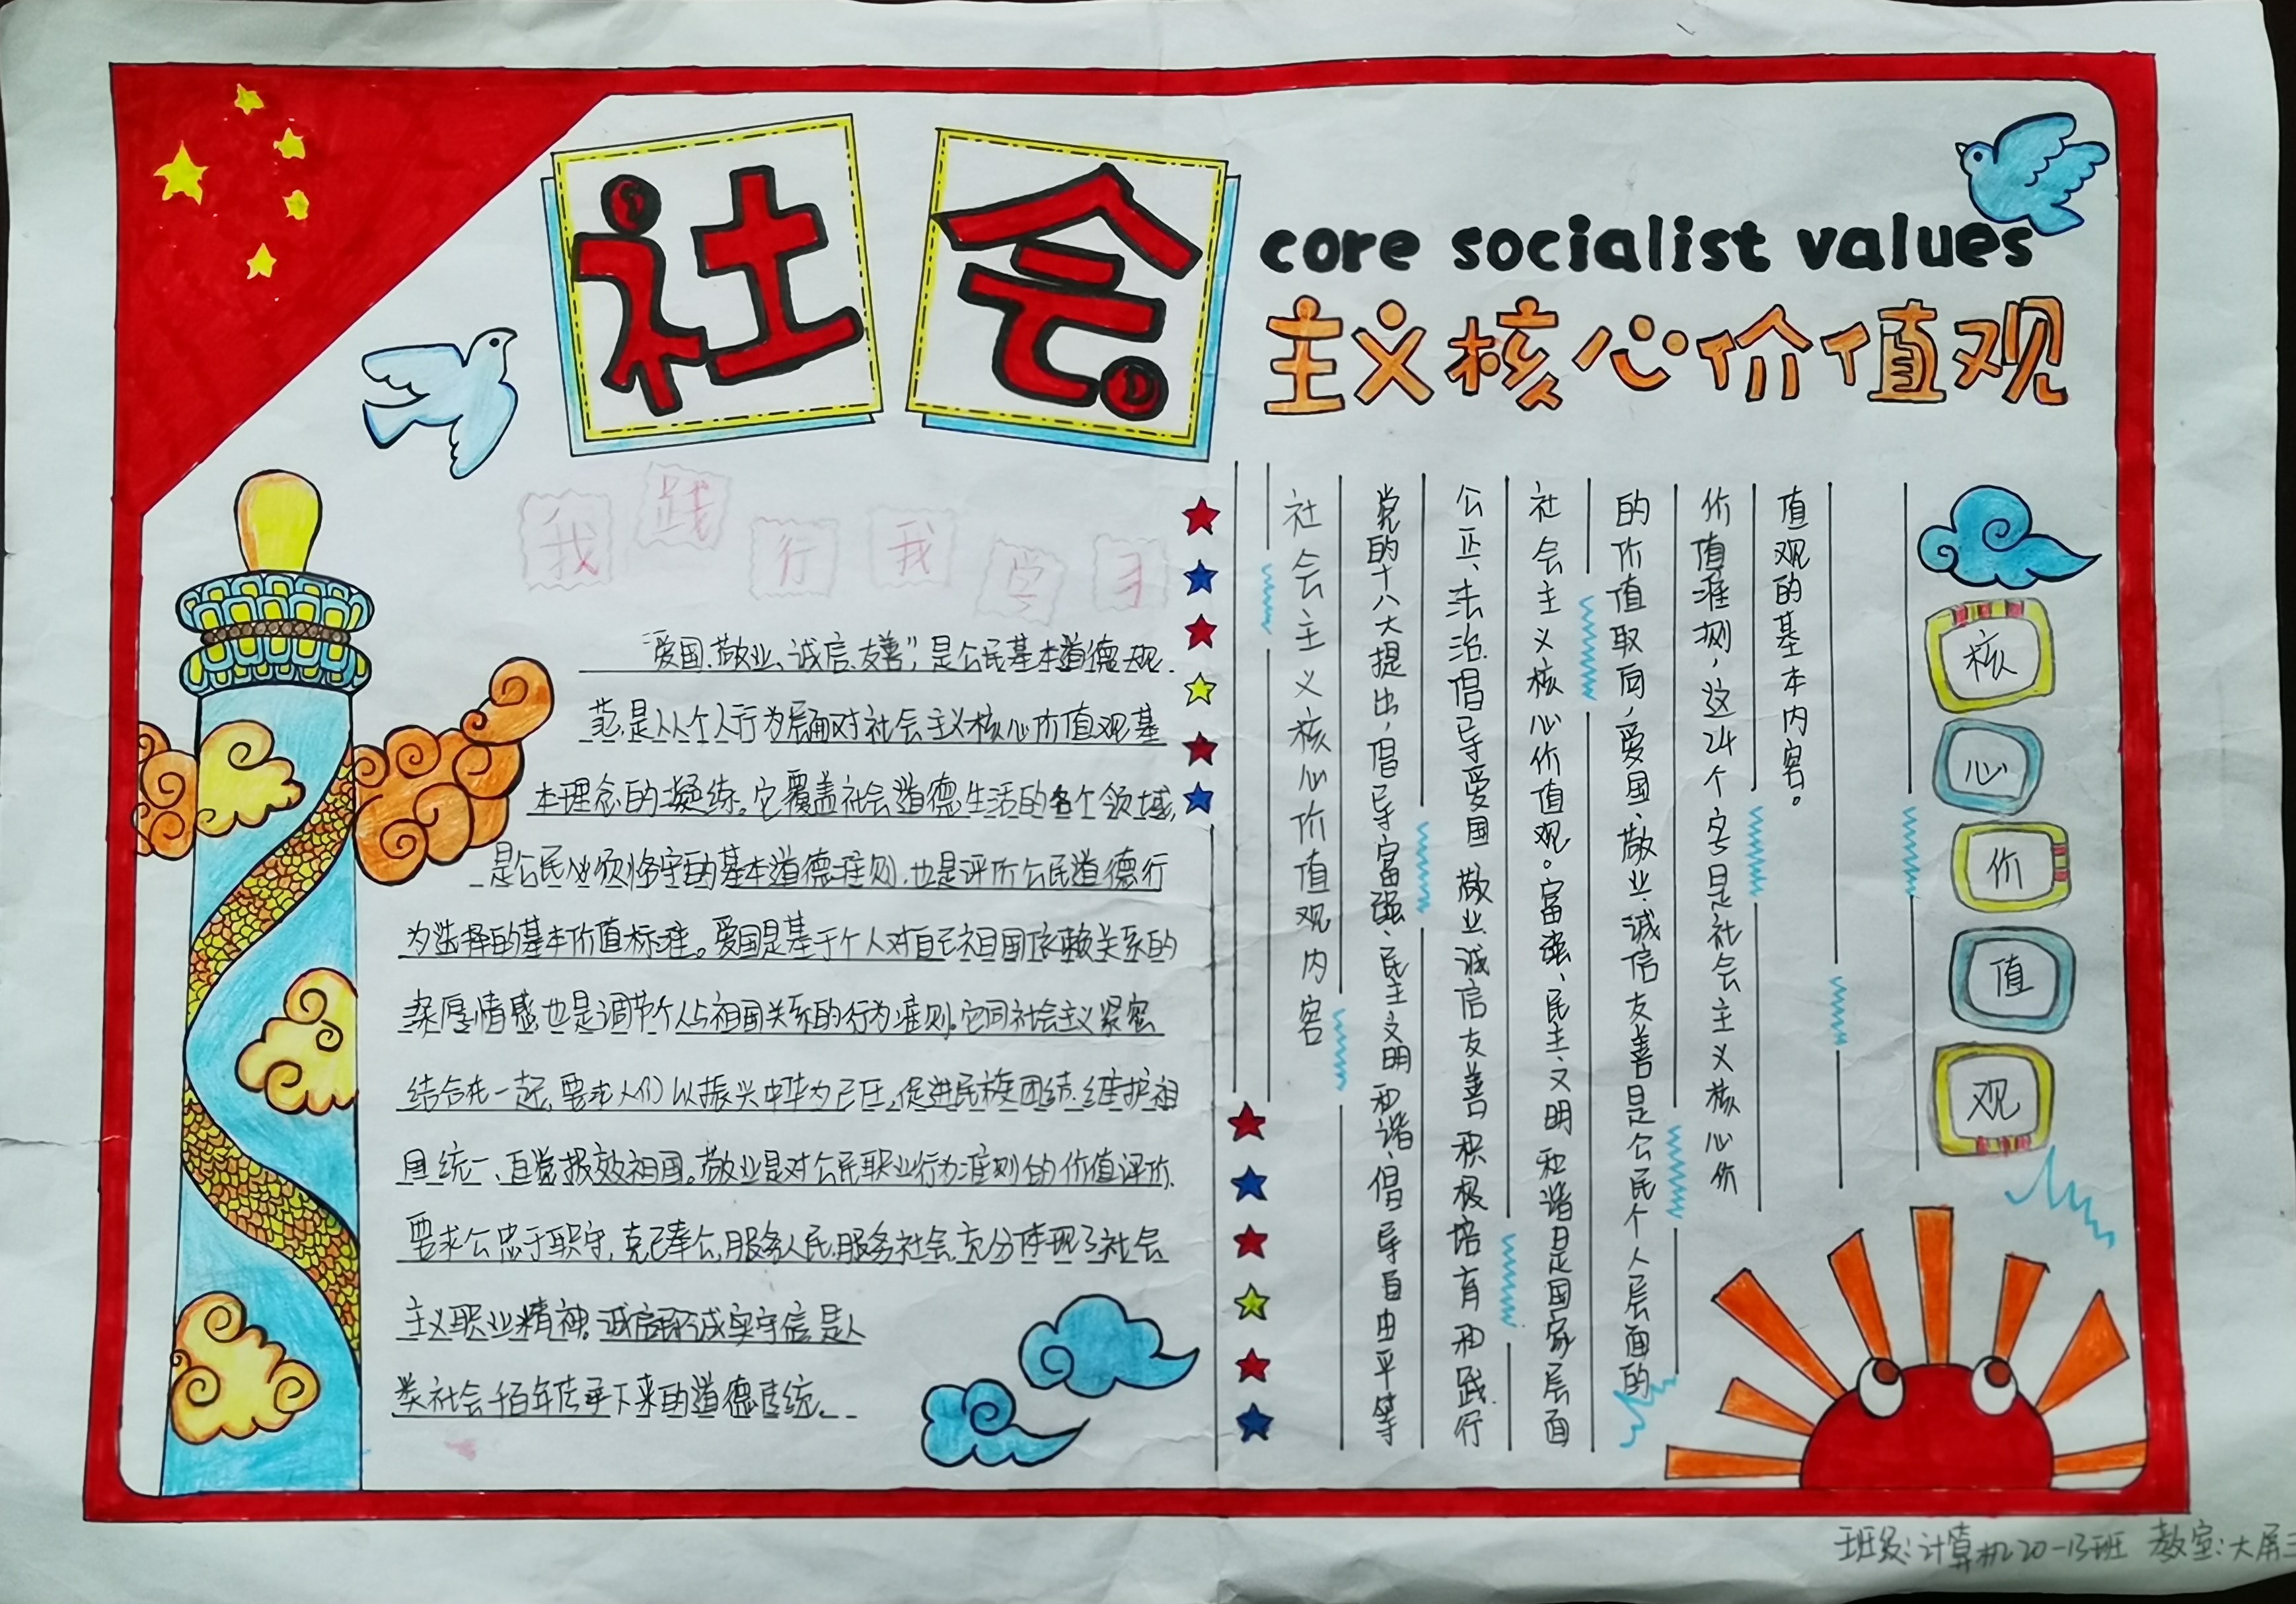 社会
core socialist values
主义核心价值观
我践行我学习
“爱国、敬业、诚信、友善”，是公民基本道德规
范，是从个人行为层面对社会主义核心价值观基
本理念的凝练。它覆盖社会道德生活的各个领域，
是公民必须恪守的基本道德准则，也是评价公民道德行
为选择的基本价值标准。爱国是基于个人对自己祖国依赖关系的
深厚情感，也是调节个人与祖国关系的行为准则。它同社会主义紧密
结合在一起，要求人们以振兴中华为己任，促进民族团结、维护祖
国统一、自觉报效祖国。敬业是对公民职业行为准则的价值评价，
要求公忠于职守，克己奉公，服务人民，服务社会，充分体现了社会
主义职业精神。诚信即诚实守信，是人
类社会千百年传承下来的道德传统。
社会主义核心价值观内容
党的十八大提出，倡导富强、民主、文明、和谐、倡导自由平等
公正、法治、倡导爱国 敬业 诚信 友善 积极培育和践行
社会主义核心价值观。富强、民主、文明 和谐是国家层面
的价值取向，爱国、敬业、诚信 友善是公民个人层面的
价值准则，这24个字是社会主义核心价
值观的基本内容。
核
心
价
值
观
班级：计算机20-13班 教室：大屏